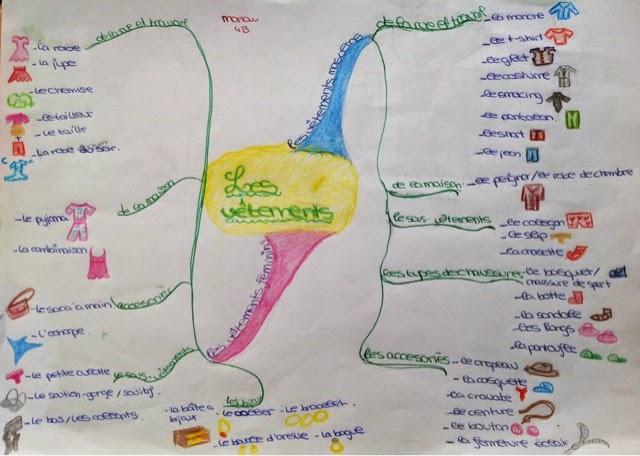 Manou
4B.
Les
vêtements
les vêtements masculins
les vêtements féminins
de la rue et travail
- la robe
- la jupe
- le chemise
- le tailleur
- le taille
+
- la robe du soir.
de la maison
- le pyjama
- la combinaison
accessoires
- le sac à main
- l'écharpe.
les sous-vêtements
- le petite culotte
- le soutien-gorge / soutif.
- le bas / les collants
les bijoux
- la boîte à
bijoux.
- le collier
- le bracelet.
- le boucle d'oreille
- la bague
de la rue et travail
- la manche
- le t-shirt
- le gilet
- le costume
- le smocing
- le pantalon.
- le short
- le jean
de la maison
- le peignoir / le robe de chambre
les sous-vêtements
- le caleçon
- le slip
- la chaussette
les types de chaussures
- le basquet /
chaussure de sport
- la botte
- la sandale
- les flongs
- la pantoufle
les accessoires
- le chapeau
- la casquette
- la cravate
- le centure
- le bouton
- la fermeture éclair